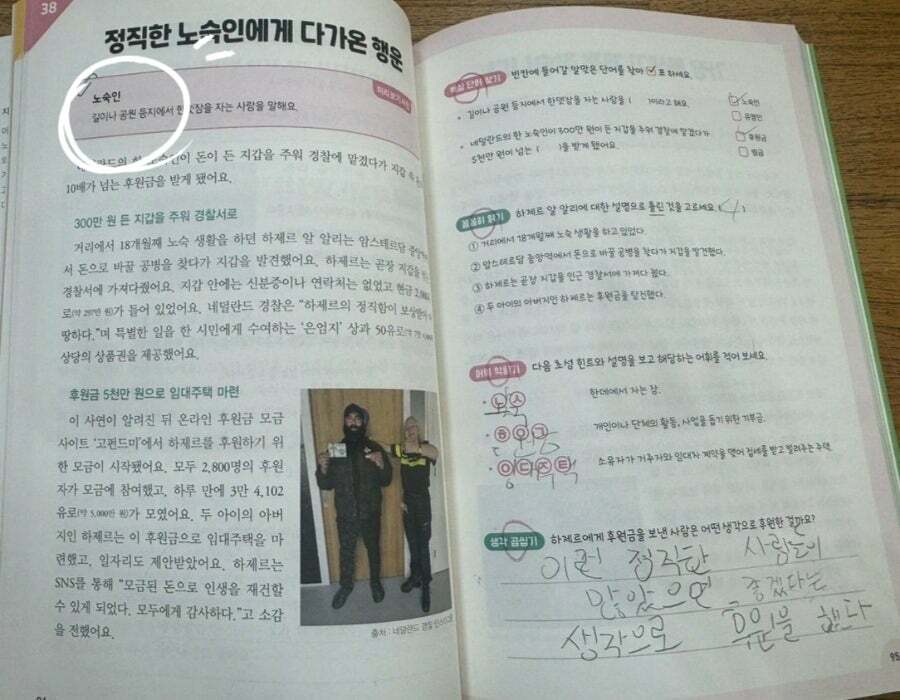 38
정직한 노숙인에게 다가온 행운
미리보기사전
노숙인
길이나 공원 등지에서 한뎃잠을 자는 사람을 말해요.
네덜란드의 한 노숙인이 돈이 든 지갑을 주워 경찰에 맡겼다가 지갑 속
10배가 넘는 후원금을 받게 됐어요.
300만 원 든 지갑을 주워 경찰서로
거리에서 18개월째 노숙 생활을 하던 하제르 알 알리는 암스테르담 중앙역에
서 돈으로 바꿀 공병을 찾다가 지갑을 발견했어요. 하제르는 곧장 지갑을
경찰서에 가져다줬어요. 지갑 안에는 신분증이나 연락처는 없었고 현금
로(약 297만 원)가 들어 있었어요. 네덜란드 경찰은 "하제르의 정직함이 보상받아
땅하다."며 특별한 일을 한 시민에게 수여하는 '은엄지' 상과 50유로
상당의 상품권을 제공했어요.
후원금 5천만 원으로 임대주택 마련
이 사연이 알려진 뒤 온라인 후원금 모금
사이트 '고펀드미'에서 하제르를 후원하기 위
한 모금이 시작됐어요. 모두 2,800명의 후원
자가 모금에 참여했고, 하루 만에 3만 4,102
유로(약 5,000만 원)가 모였어요. 두 아이의 아버
지인 하제르는 이 후원금으로 임대주택을 마
련했고, 일자리도 제안받았어요. 하제르는
SNS를 통해 "모금된 돈으로 인생을 재건할
수 있게 되었다. 모두에게 감사하다."고 소감
을 전했어요.
출처 : 네덜란드 경찰
핵심 단어 찾기 빈칸에 들어갈 알맞은 단어를 찾아 ✓표 하세요.
• 길이나 공원 등지에서 한뎃잠을 자는 사람을 ( )이라고 해요.
✓ 노숙인
□ 유명인
• 네덜란드의 한 노숙인이 300만 원이 든 지갑을 주워 경찰에 맡겼다가
5천만 원이 넘는 ( )을 받게 됐어요.
✓ 후원금
□ 벌금
꼼꼼히 읽기 하제르 알 알리에 대한 설명으로 틀린 것을 고르세요. ( 4 )
① 거리에서 18개월째 노숙 생활을 하고 있었다.
② 암스테르담 중앙역에서 돈으로 바꿀 공병을 찾다가 지갑을 발견했다.
③ 하제르는 곧장 지갑을 인근 경찰서에 가져다 줬다.
④ 두 아이의 아버지인 하제르는 후원금을 탕진했다.
어휘 익히기 다음 초성 힌트와 설명을 보고 해당하는 어휘를 적어 보세요.
• ㄴ ㅅ 한데에서 자는 잠.
노숙
• ㅎ ㅇ ㄱ 개인이나 단체의 활동, 사업을 돕기 위한 기부금.
후원금
• ㅇ ㄷ ㅈ ㅌ 소유자가 거주자와 임대차 계약을 맺어 집세를 받고 빌려주는 주택.
임대주택
생각 곱씹기 하제르에게 후원금을 보낸 사람은 어떤 생각으로 후원한 걸까요?
이런 정직한 사람들이
많았으면 좋겠다는
생각으로 후원을 했다
95